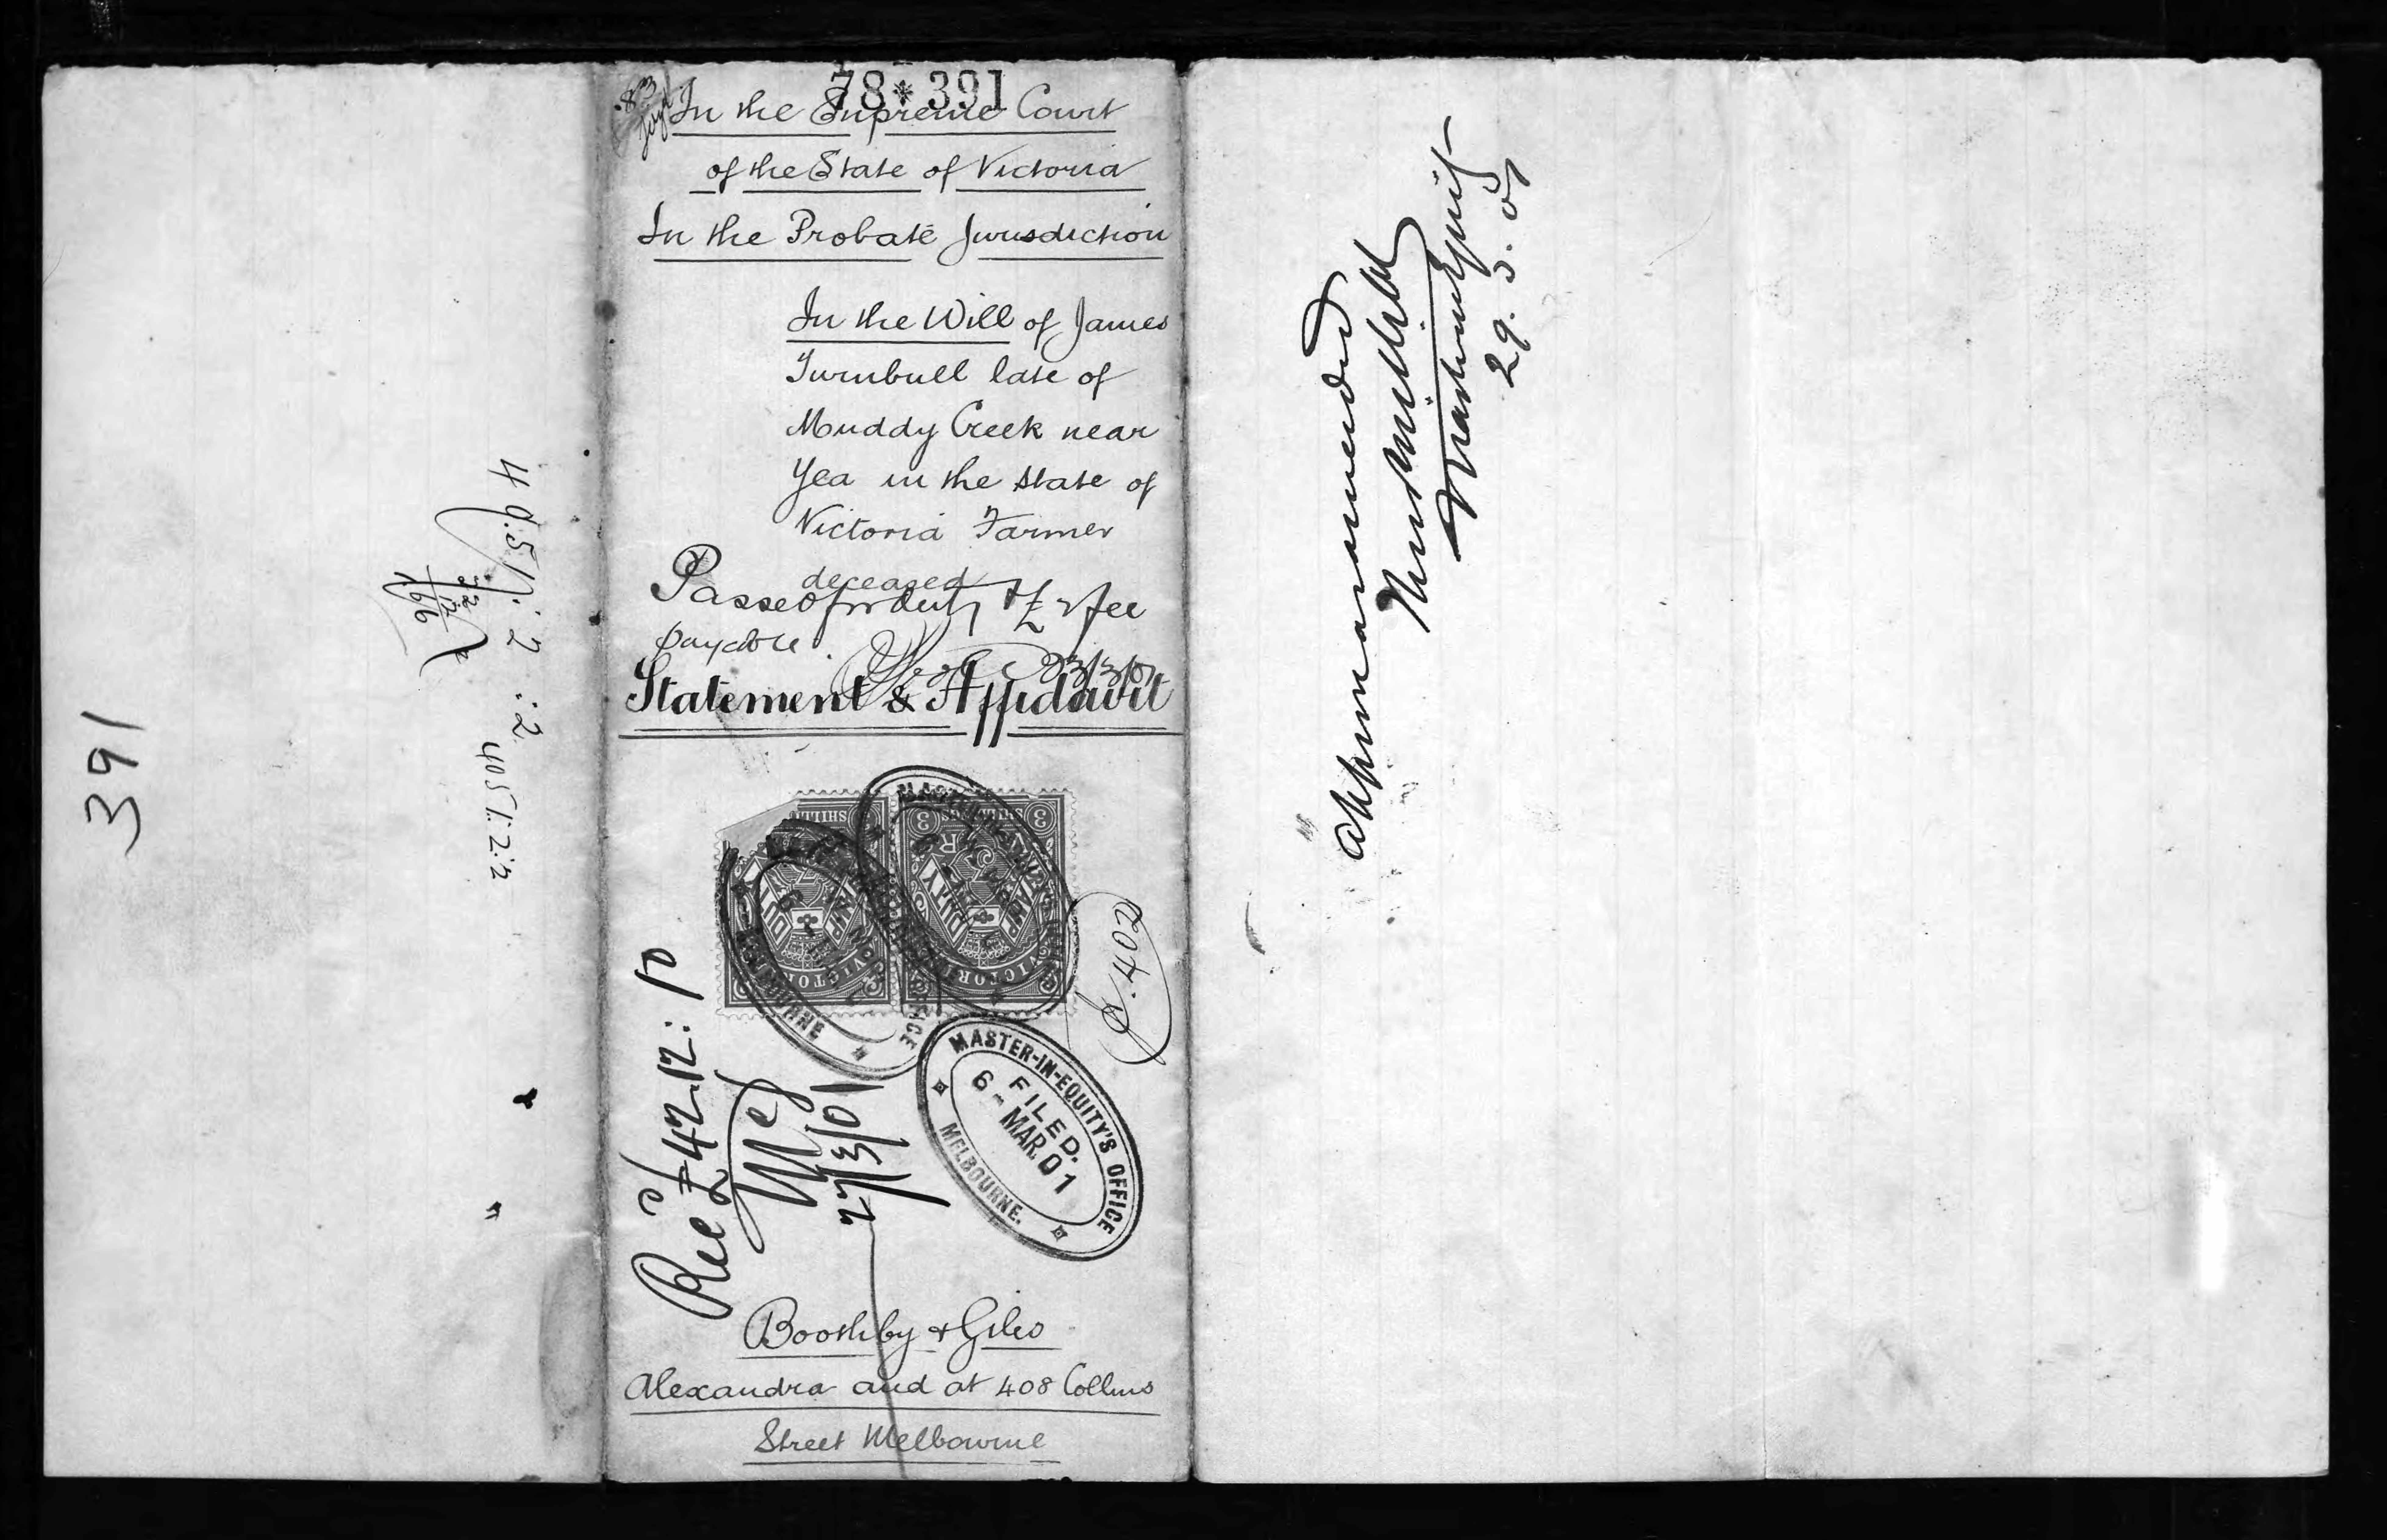 391
4951:2:2
4051:2:2
78*391
In the Supreme Court
of the State of Victoria
In the Probate Jurisdiction
In the Will of James
Turnbull late of
Muddy Creek near
Yea in the State of
Victoria Farmer
deceased
Passed for duty & fee
payable.
23/3/01
Statement & Affidavit
VICTORIA
STAMP DUTY
3 SHILLINGS 3
402
Rec'd £42.12:10
27/3/01
MASTER-IN-EQUITY'S OFFICE
FILED.
6-MAR.01
MELBOURNE.
Boothby & Giles
Alexandra and at 408 Collins
Street Melbourne
Master in Equity
29.3.01